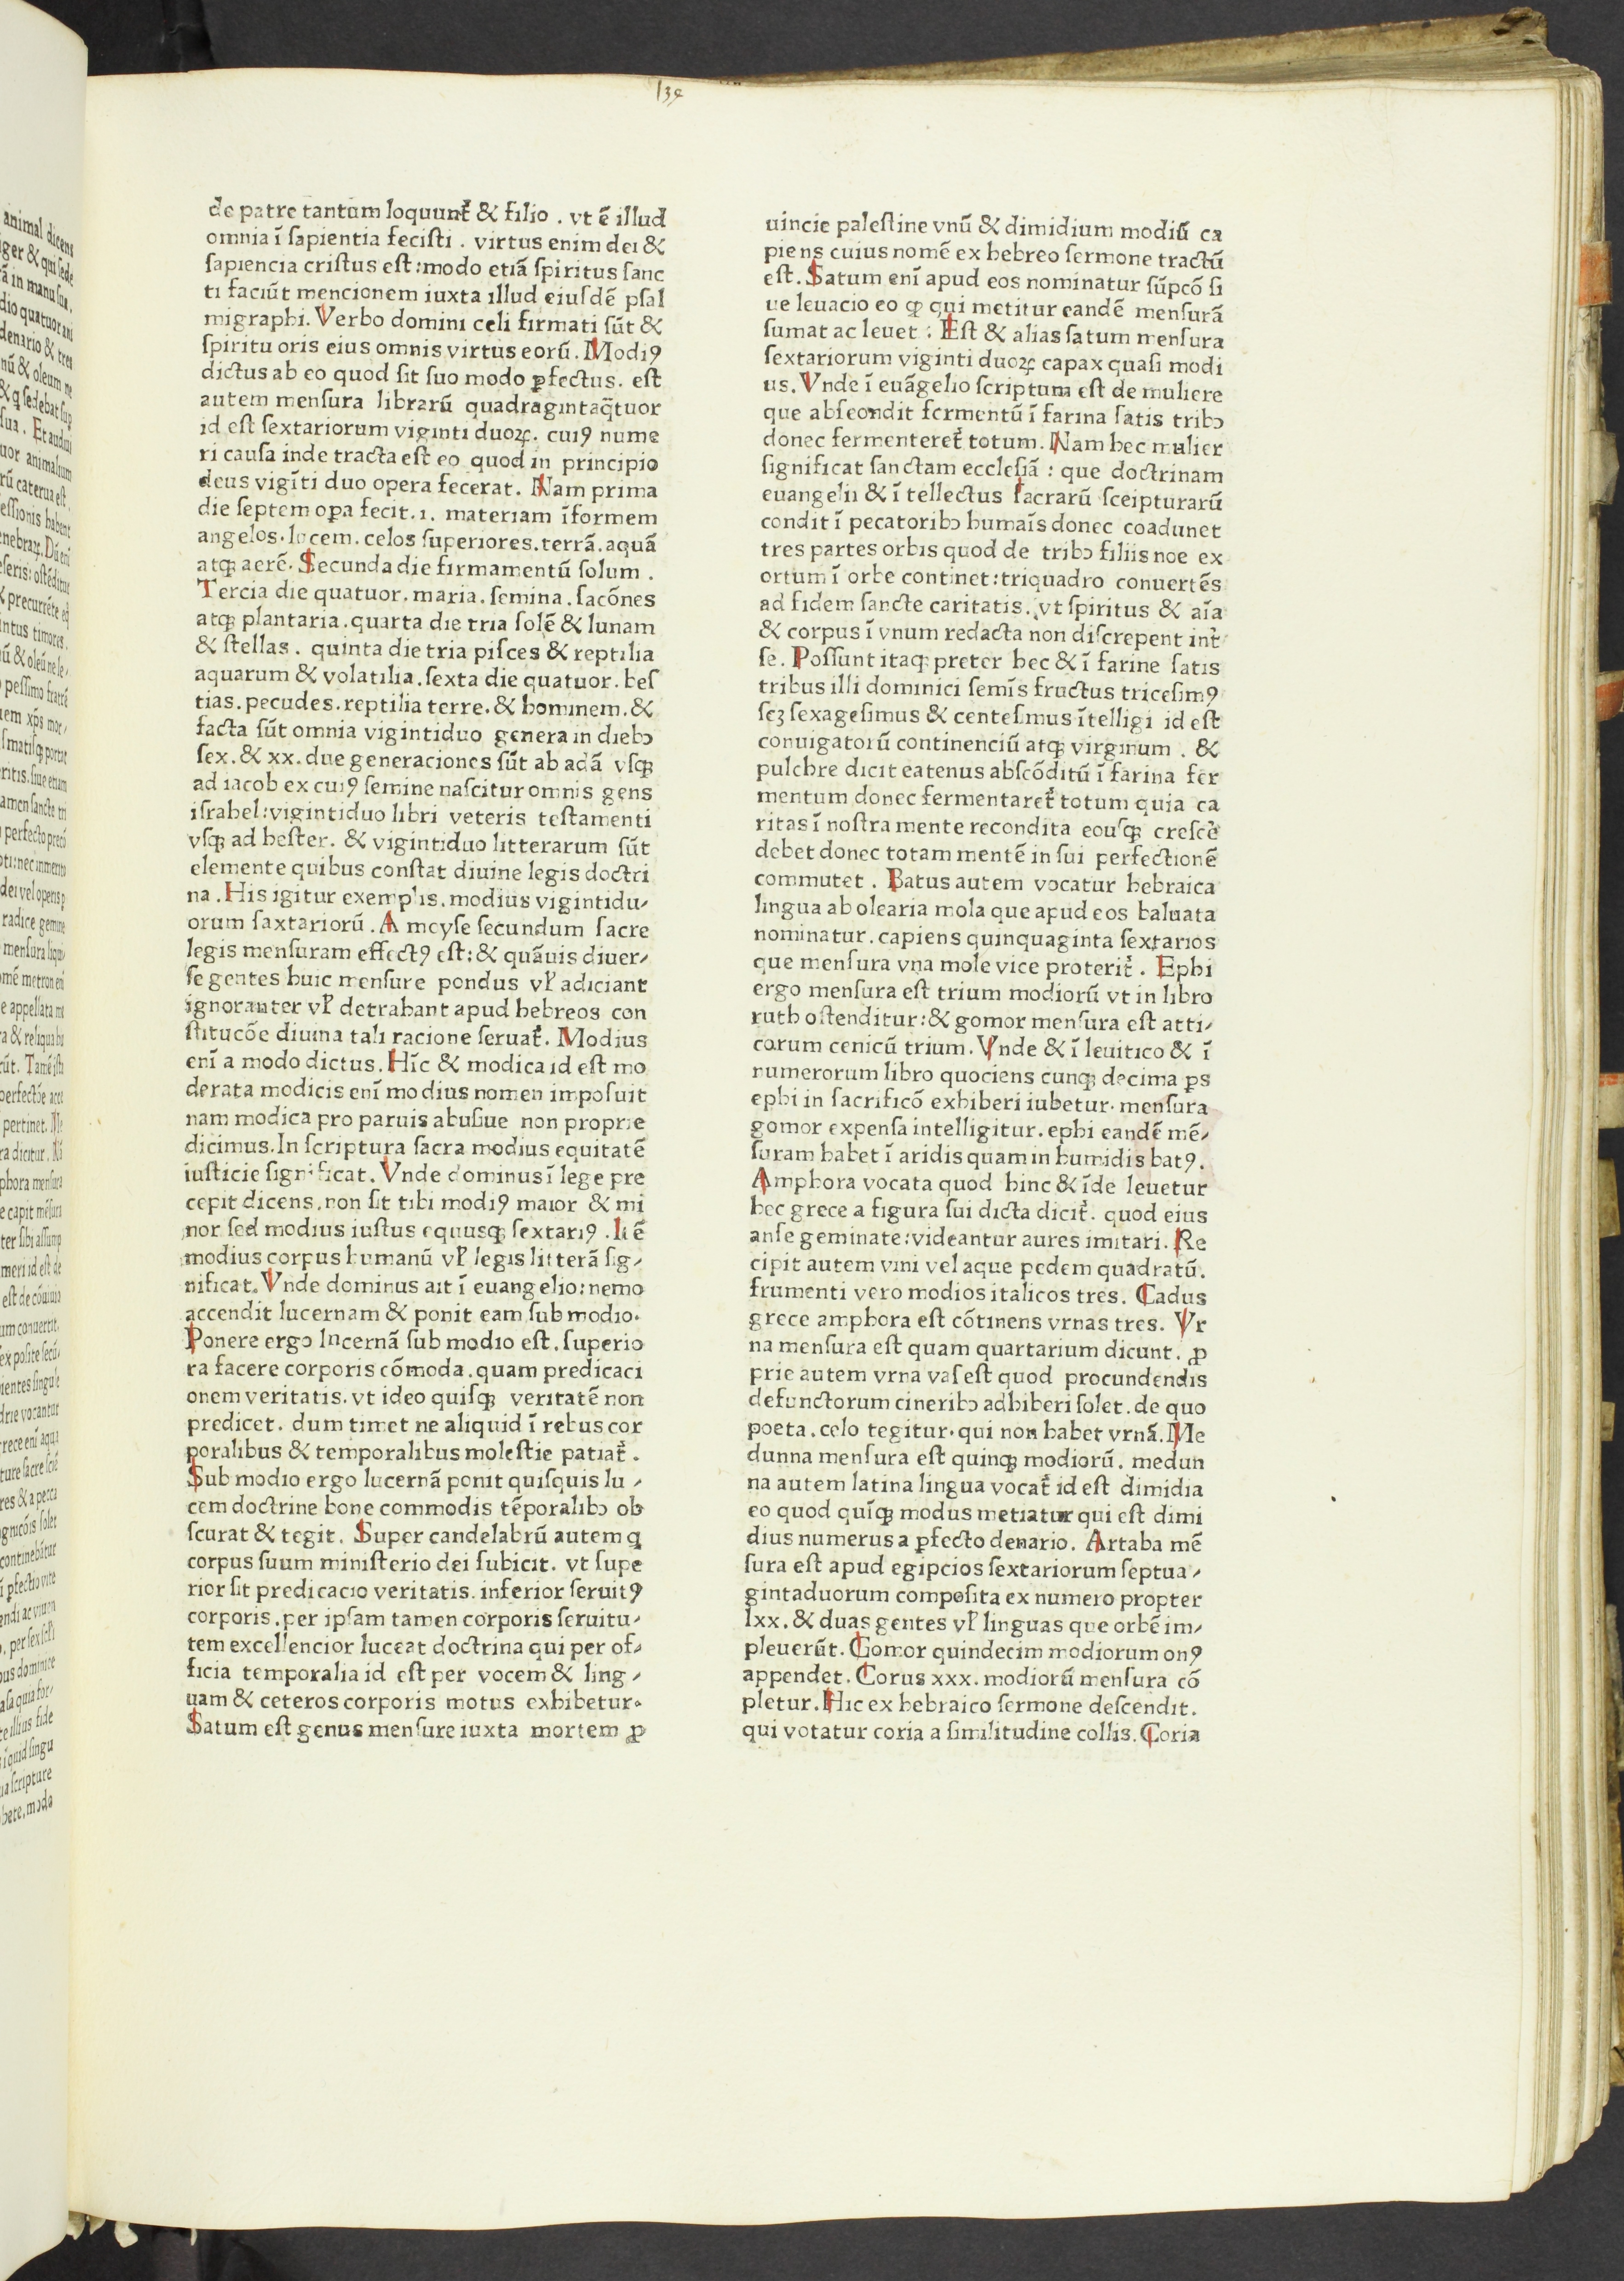 134
de patre tantum loquunt᷑ & filio . vt ē illud
omnia ī sapientia fecisti . virtus enim dei &
sapiencia cristus est : modo etiā spiritus sanc
ti faciūt mencionem iuxta illud eiusdē psal
migraphi. Verbo domini celi firmati sūt &
spiritu oris eius omnis virtus eorū. Modiꝯ
dictus ab eo quod sit suo modo ꝑfectus. est
autem mensura librarū quadragintaq̄tuor
id est sextariorum viginti duoꝝ. cuiꝯ nume
ri causa inde tracta est eo quod in principio
deus vigīti duo opera fecerat. Nam prima
die septem oꝑa fecit .ı. materiam īformem
angelos. lucem. celos superiores. terrā. aquā
atqꝫ aerē. Secunda die firmamentū solum .
Tercia die quatuor. maria. semina. sacōnes
atqꝫ plantaria. quarta die tria solē & lunam
& stellas . quinta die tria pisces & reptilia
aquarum & volatilia. sexta die quatuor. bes
tias. pecudes. reptilia terre. & hominem. &
facta sūt omnia vigintiduo genera in diebꝰ
sex. & xx. due generaciones sūt ab adā vsqꝫ
ad iacob ex cuiꝯ semine nascitur omnis gens
israhel : vigintiduo libri veteris testamenti
vsqꝫ ad hester. & vigintiduo litterarum sūt
elemente quibus constat diuine legis doctri
na . His igitur exemplis. modius vigintidu⸗
orum saxtariorū. A moyse secundum sacre
legis mensuram effectꝯ est : & quāuis diuer⸗
se gentes huic mensure pondus vꝉ adiciant
ignoranter vꝉ detrahant apud hebreos con
stitucōe diuina tali racione seruat᷑. Modius
enī a modo dictus. Hīc & modica id est mo
derata modicis enī modius nomen imposuit
nam modica pro paruis abusue non proprie
dicimus. In scriptura sacra modius equitatē
iusticie significat. Vnde dominus ī lege pre
cepit dicens. non sit tibi modiꝯ maior & mi
nor sed modius iustus equusqꝫ sextariꝯ . Itē
modius corpus humanū vꝉ legis litterā sig⸗
nificat. Vnde dominus ait ī euangelio : nemo
accendit lucernam & ponit eam sub modio.
Ponere ergo lucernā sub modio est. superio
ra facere corporis cōmoda. quam predicaci
onem veritatis. vt ideo quisqꝫ veritatē non
predicet. dum timet ne aliquid ī rebus cor
poralibus & temporalibus molestie patiat᷑.
Sub modio ergo lucernā ponit quisquis lu⸗
cem doctrine bone commodis tēporalibꝰ ob
scurat & tegit. Super candelabrū autem q
corpus suum ministerio dei subicit. vt supe
rior sit predicacio veritatis. inferior seruitꝯ
corporis. per ipsam tamen corporis seruitu⸗
tem excellencior luceat doctrina qui per of⸗
ficia temporalia id est per vocem & ling⸗
uam & ceteros corporis motus exhibetur.
Satum est genus mensure iuxta mortem ꝓ
uincie palestine vnū & dimidium modiū ca
piens cuius nomē ex hebreo sermone tractū
est. Satum enī apud eos nominatur sūpcō si
ue leuacio eo ꝙ qui metitur eandē mensurā
sumat ac leuet : Est & alias satum mensura
sextariorum viginti duoꝝ capax quasi modi
us. Vnde ī euāgelio scriptum est de muliere
que abscondit fermentū ī farina satis tribꝰ
donec fermenteret᷑ totum. Nam hec mulier
significat sanctam ecclesiā : que doctrinam
euangelii & ī tellectus sacrarū sceipturarū
condit ī pecatoribꝰ humaīs donec coadunet
tres partes orbis quod de tribꝰ filiis noe ex
ortum ī orbe continet : triquadro conuertēs
ad fidem sancte caritatis. vt spiritus & aīa
& corpus ī vnum redacta non discrepent int᷑
se. Possunt itaqꝫ preter hec & ī farine satis
tribus illi dominici semīs fructus tricesimꝯ
scꝫ sexagesimus & centesmus ītelligi id est
coniugatorū continenciū atqꝫ virginum . &
pulchre dicit eatenus abscōditū ī farina fer
mentum donec fermentaret᷑ totum quia ca
ritas ī nostra mente recondita eousqꝫ crescē
debet donec totam mentē in sui perfectionē
commutet . Batus autem vocatur hebraica
lingua ab olearia mola que apud eos baluata
nominatur. capiens quinquaginta sextarios
que mensura vna mole vice proterit᷑ . Ephi
ergo mensura est trium modiorū vt in libro
ruth ostenditur : & gomor mensura est atti⸗
corum cenicū trium. Vnde & ī leuitico & ī
numerorum libro quociens cunqꝫ decima ps
ephi in sacrificō exhiberi iubetur. mensura
gomor expensa intelligitur. ephi eandē mē⸗
suram habet ī aridis quam in humidis batꝯ.
Amphora vocata quod hinc & īde leuetur
hec grece a figura sui dicta dicit᷑. quod eius
anse geminate : videantur aures imitari. Re
cipit autem vini vel aque pedem quadratū.
frumenti vero modios italicos tres. Cadus
grece amphora est cōtinens vrnas tres. Vr
na mensura est quam quartarium dicunt. ꝓ
prie autem vrna vas est quod procundendis
defunctorum cineribꝰ adhiberi solet. de quo
poeta. celo tegitur. qui non habet vrnā. Me
dunna mensura est quinqꝫ modiorū. medun
na autem latina lingua vocat᷑ id est dimidia
eo quod quīqꝫ modus metiatur qui est dimi
dius numerus a ꝑfecto denario. Artaba mē
sura est apud egipcios sextariorum septua⸗
gintaduorum composita ex numero propter
lxx. & duas gentes vꝉ linguas que orbē im⸗
pleuerūt. Gomor quindecim modiorum onꝯ
appendet. Corus xxx. modiorū mensura cō
pletur. Hic ex hebraico sermone descendit.
qui votatur coria a similitudine collis. Coria